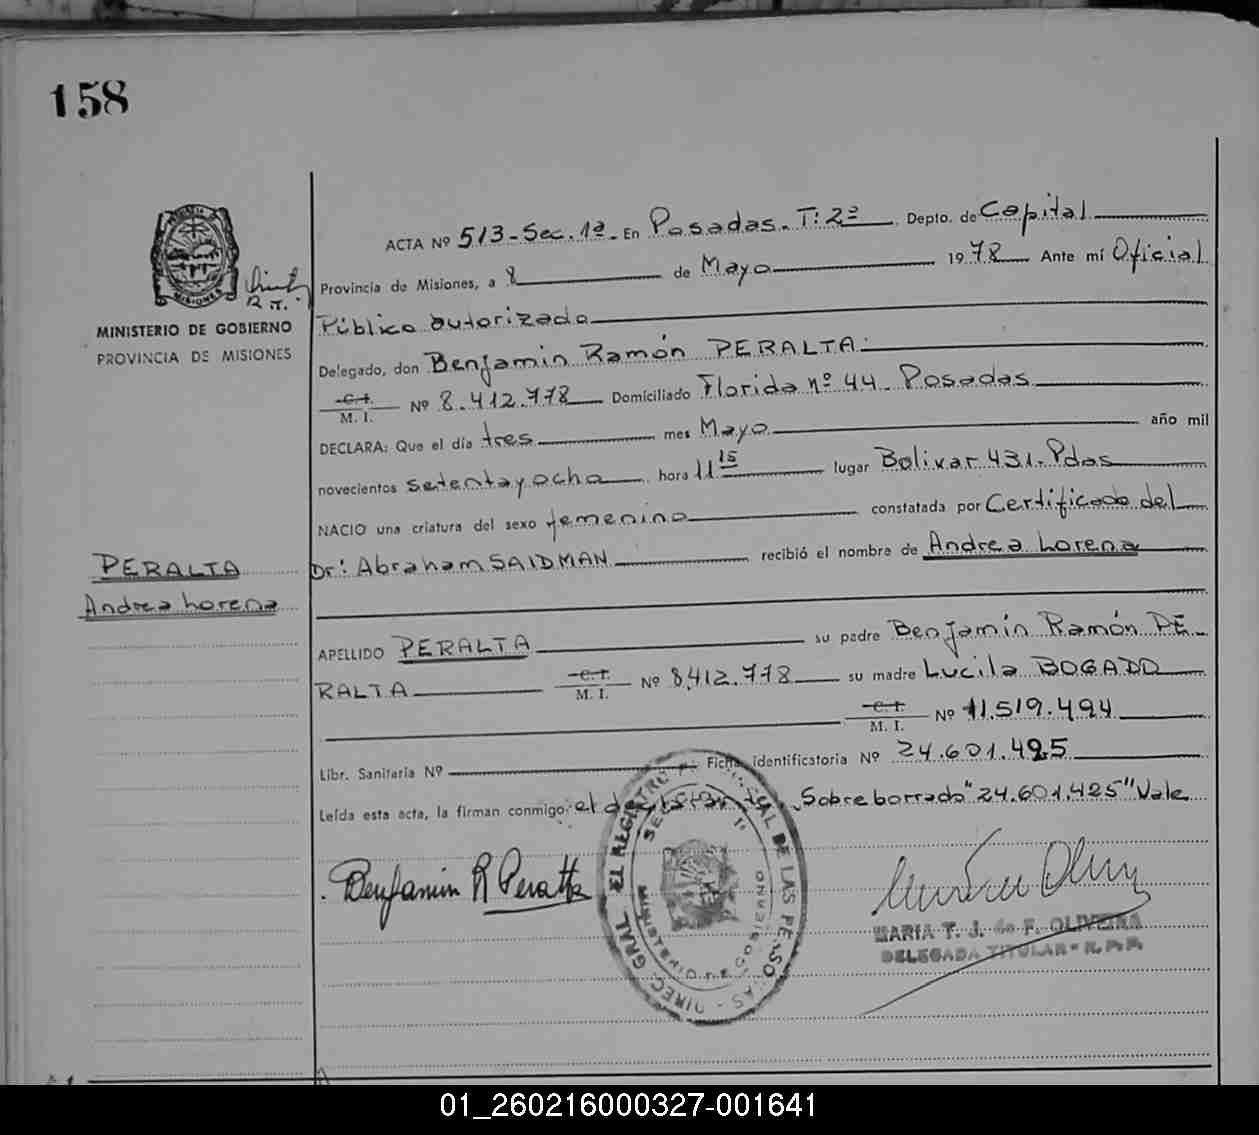 158
ACTA Nº 513-Sec. 1ª. En Posadas. T: 2º Depto. de Capital
Provincia de Misiones, a 8 de Mayo 1978 Ante mí Oficial
R. T.
MINISTERIO DE GOBIERNO
PROVINCIA DE MISIONES
Público autorizado
Delegado, don Benjamín Ramón PERALTA.
C. I.
M. I. Nº 8.412.778 Domiciliado Florida nº 44. Posadas
DECLARA: Que el día tres mes Mayo año mil
novecientos setentayocho hora 11 15 lugar Bolivar 431. Pdas
NACIO una criatura del sexo femenino constatada por Certificado del
Dr: Abraham SAIDMAN recibió el nombre de Andrea Lorena
PERALTA
Andrea Lorena
APELLIDO PERALTA su padre Benjamín Ramón PE-
RALTA C. I. M. I. Nº 8.412.778 su madre Lucila BOGADO
C. I. M. I. Nº 11.519.494
Libr. Sanitaria Nº Ficha identificatoria Nº 24.601.425
Leída esta acta, la firman conmigo: el declarante. Sobreborrado "24.601.425" Vale
Benjamin R Peralta
MARIA T. J. de F. OLIVEIRA
DELEGADA TITULAR - R. P. P.
SECC. 1ª
MINISTERIO DE GOBIERNO
01_260216000327-001641